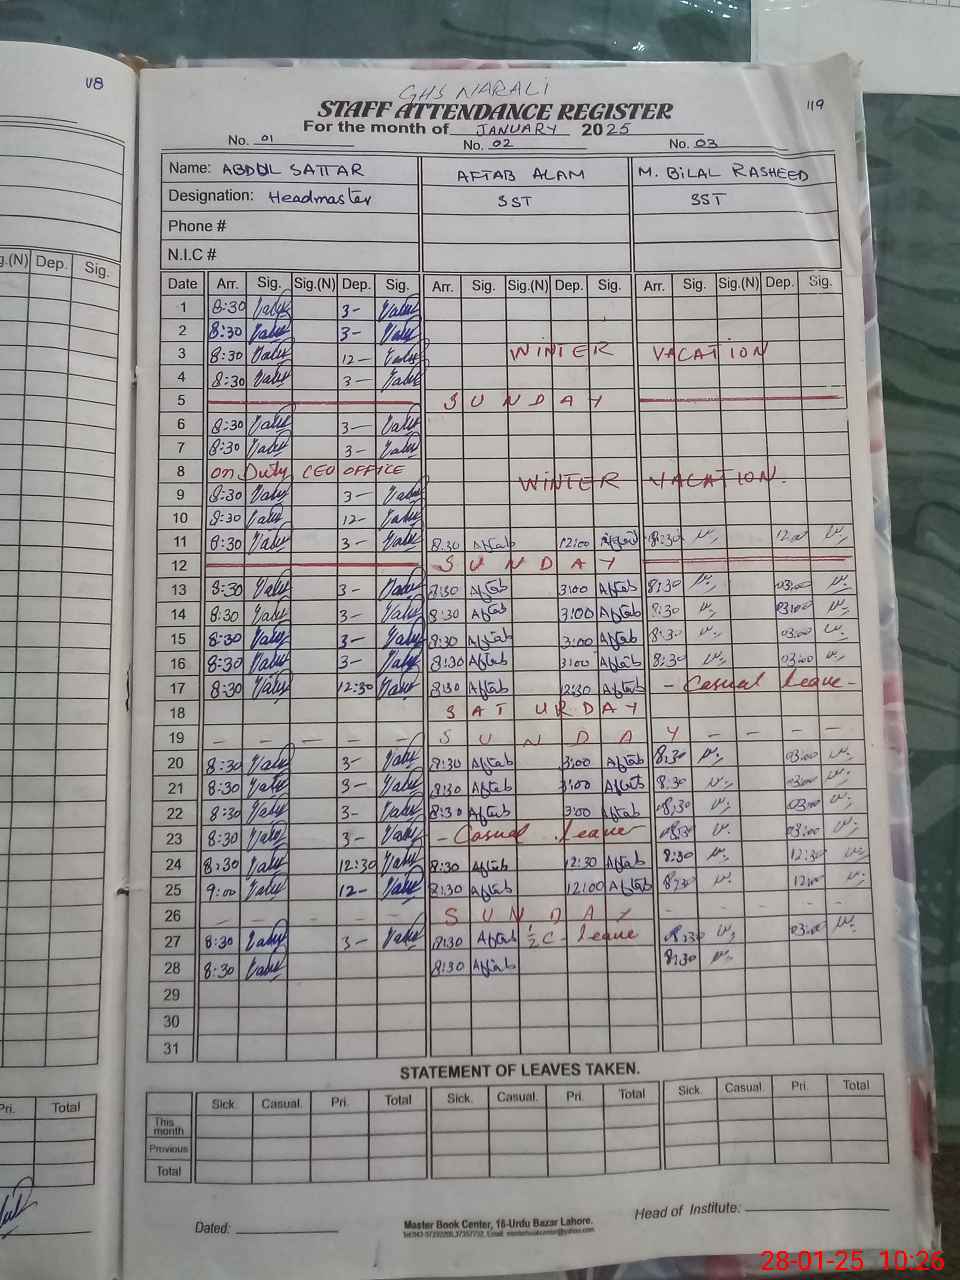 118
g.(N) Dep. Sig.
Pri. Total
GHS NARALI
119
STAFF ATTENDANCE REGISTER
For the month of JANUARY 2025
No. 01 No. 02 No. 03
Name: ABDUL SATTAR AFTAB ALAM M. BILAL RASHEED
Designation: Headmaster SST SST
Phone #
N.I.C #
Date Arr. Sig. Sig.(N) Dep. Sig. Arr. Sig. Sig.(N) Dep. Sig. Arr. Sig. Sig.(N) Dep. Sig.
1 8:30 3-
2 8:30 3-
3 8:30 12- WINTER VACATION
4 8:30 3-
5 SUNDAY
6 8:30 3-
7 8:30 3-
8 on Duty CEO OFFICE WINTER VACATION.
9 8:30 3-
10 8:30 12-
11 8:30 3- 8:30 Aftab 12:00 8:30 12:00
12 SUNDAY
13 8:30 3- 8:30 Aftab 3:00 Aftab 8:30 03:00
14 8:30 3- 8:30 Aftab 3:00 Aftab 8:30 03:00
15 8:30 3- 8:30 Aftab 3:00 Aftab 8:30 03:00
16 8:30 3- 8:30 Aftab 3:00 Aftab 8:30 03:00
17 8:30 12:30 8:30 Aftab 12:30 Aftab - Casual leave -
18 SATURDAY
19 - - - - - SUNDAY - - - -
20 8:30 3- 8:30 Aftab 3:00 Aftab 8:30 03:00
21 8:30 3- 8:30 Aftab 3:00 Aftab 8:30 03:00
22 8:30 3- 8:30 Aftab 3:00 Aftab 8:30 03:00
23 8:30 3- - Casual leave 8:30 03:00
24 8:30 12:30 8:30 Aftab 12:30 Aftab 8:30 12:30
25 9:00 12- 8:30 Aftab 12:00 Aftab 8:30 12:00
26 - - - - - SUNDAY - - - - -
27 8:30 3- 8:30 Aftab ½ C- leave 8:30 03:00
28 8:30 8:30 Aftab 8:30
29
30
31
STATEMENT OF LEAVES TAKEN.
Sick. Casual. Pri. Total Sick. Casual. Pri. Total Sick. Casual. Pri. Total
This month
Previous
Total
Dated: Master Book Center, 16-Urdu Bazar Lahore. Head of Institute:
28-01-25 10:26